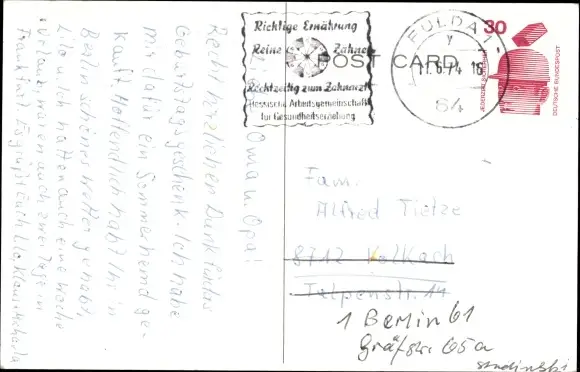 Richtige Ernährung
Reine Zähne
Rechtzeitig zum Zahnarzt
Hessische Arbeitsgemeinschaft
für Gesundheitserziehung
FULDA 1
11.6.74 16
64
30
JEDERZEIT SICHERHEIT
DEUTSCHE BUNDESPOST
POST CARD
Oma u. Opa!
Recht herzlichen Dank für das
Geburtstagsgeschenk. Ich habe
mir dafür ein Sommerhemd ge-
kauft. Hoffentlich habt Ihr in
Berlin schönes Wetter gehabt,
Lilo u. Ich hatten auch eine Woche
Urlaub waren auch zwei Tage in
Frankfurt. Es grüßt Euch Lilo, Klaus Michaela
Fam.
Alfred Tietze
8712 Volkach
Tulpenstr. 14
1 Berlin 61
Gräfestr. 65a